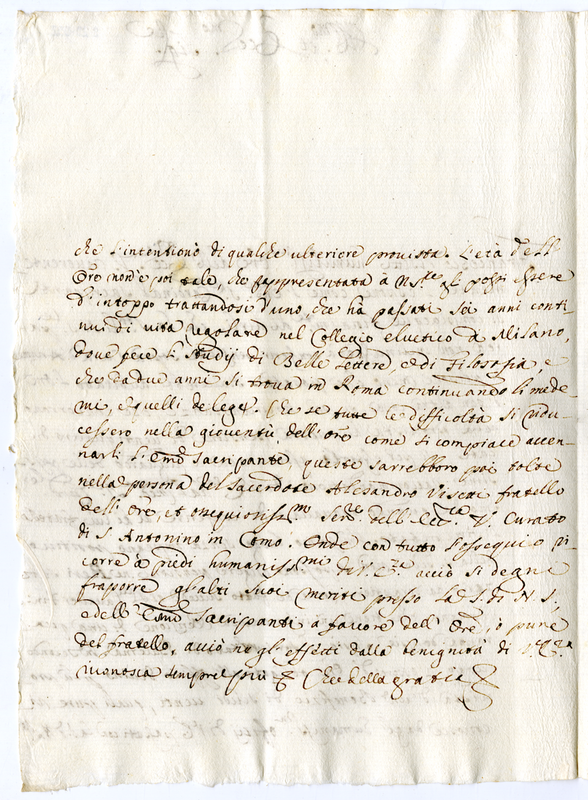 che l'intentione di qualche ulteriore provista. L'età dell'
Ore non è poi tale, che rappresentata à N. Sre gli possi essere
d'intoppo trattandosi d'uno, che hà passati sei anni conti
nui di vità regolare nel Collegio elvetico di Milano,
dove fece li studij di Belle Lettere e di Filosofia, e
che da due anni si trova in Roma continuando li mede
mi, e quelli de legge. Che se tutte le difficoltà si ridu
cessero nella gioventù dell'Ore come si compiace accen
narli l'Emo Sacripante, queste sarrebbero poi tolte
nella persona del Sacerdote Alesandro fratello
dell'Ore, et ossequiosissmo Serre dell'Eccza V. Curatto
di S. Antonino in Como. Onde con tutto l'ossequio ri
corre à piedi humanissmi di V. Eza acciò si degni
fraporre gl'alti suoi meriti presso N. S,
e dell'Emo Sacripanti a favore dell'Ore, ò pure
del fratello, acciò ne gl'effetti dalla benignità di V. Eza
riconosca sempre più Che della gratia